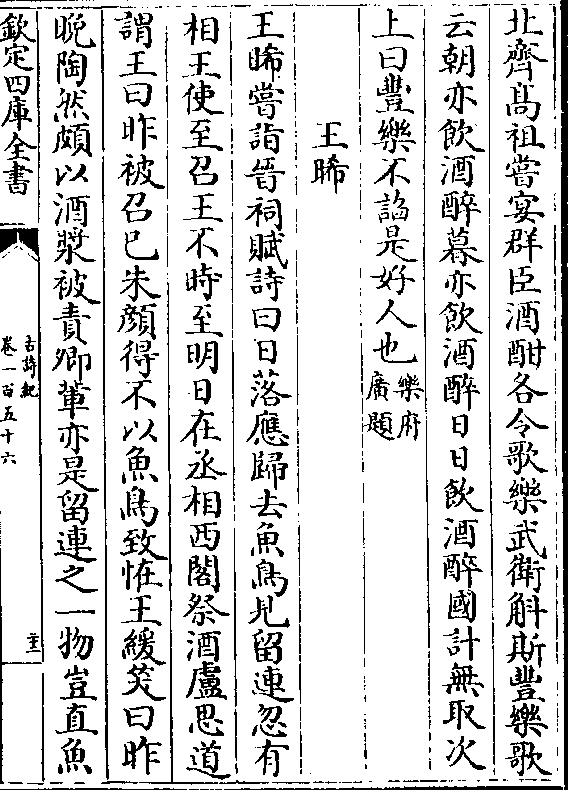 北齊髙祖嘗宴群臣酒酣各令歌樂武衛斛斯豐樂歌
云朝亦飲酒醉暮亦飲酒醉日日飲酒醉國計無取次
上曰豐樂不謟是好人也樂府廣題
王晞
王晞嘗詣晉祠賦詩曰日落應歸去魚鳥見留連忽有
相王使至召王不時至明日在丞相西閣祭酒盧思道
謂王曰昨被召已朱顔得不以魚鳥致恠王緩笑曰昨
晩陶然頗以酒漿被責卿輩亦是留連之一物豈直魚
欽定四庫全書
古詩紀
卷一百五十六